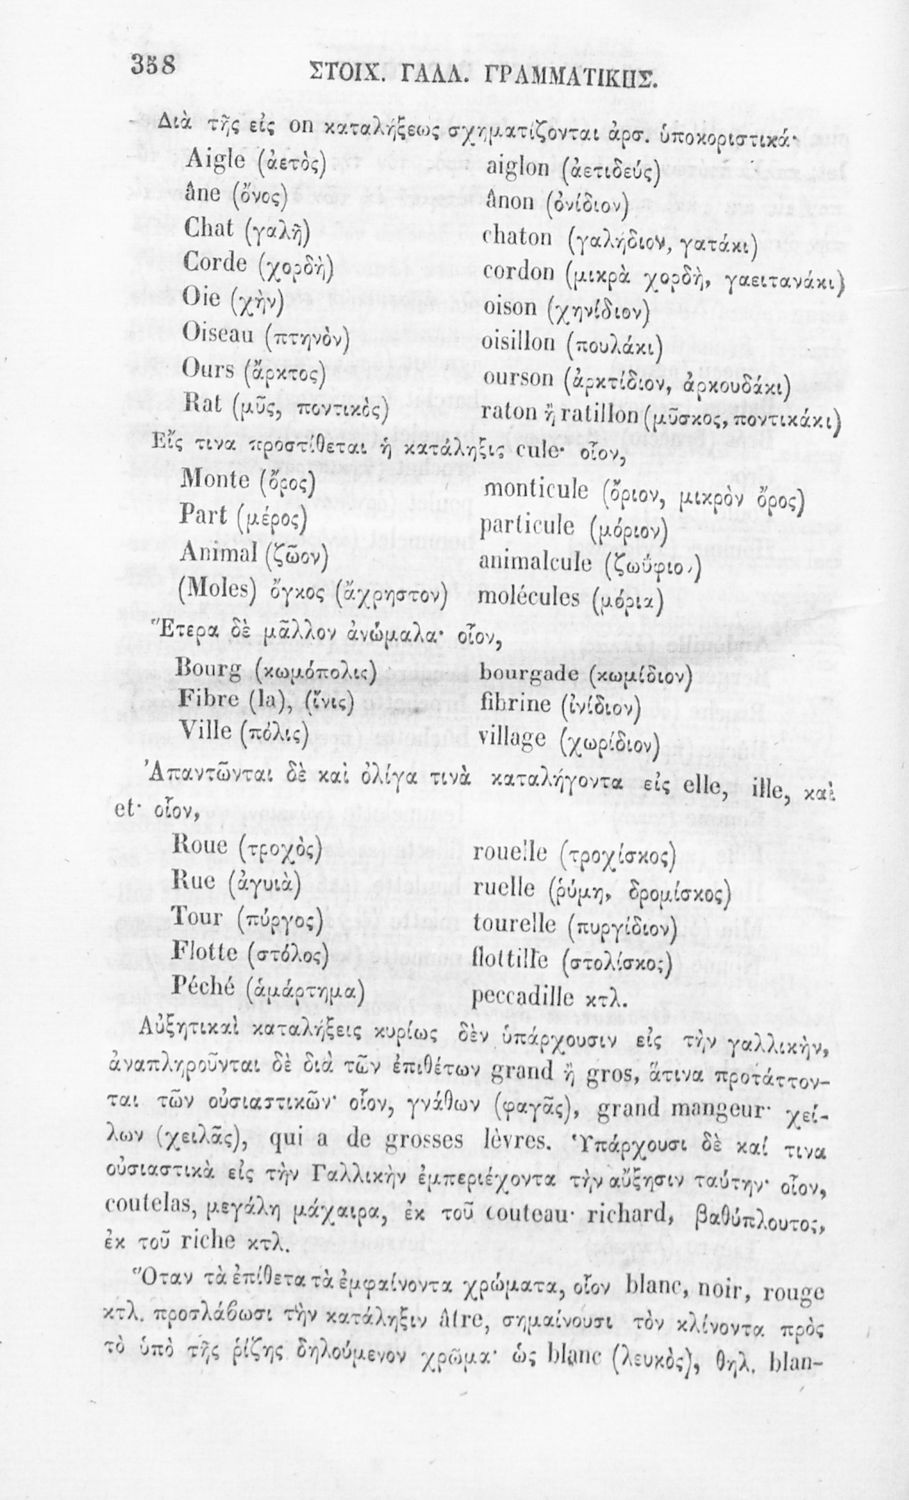 358 ΣΤΟΙΧ. ΓΑΛΛ. ΓΡΑΜΜΑΤΙΚΗΣ.
Διὰ τῆς εἰς on καταλήξεως σχηματίζονται ἀρσ. ὑποκοριστικά·
Aigle (ἀετὸς) aiglon (ἀετιδεύς)
âne (ὄνος) ânon (ὀνίδιον)
Chat (γαλῆ) chaton (γαλήδιον, γατάκι)
Corde (χορδὴ) cordon (μικρὰ χορδὴ, γαειτανάκι)
Oie (χὴν) oison (χηνίδιον)
Oiseau (πτηνὸν) oisillon (πουλάκι)
Ours (ἄρκτος) ourson (ἀρκτίδιον, ἀρκουδάκι)
Rat (μῦς, ποντικὸς) raton ἢ ratillon (μῦσκος, ποντικάκι)
Εἴς τινα προστίθεται ἡ κατάληξις cule· οἷον,
Monte (ὄρος) monticule (ὄριον, μικρὸν ὄρος)
Part (μέρος) particule (μόριον)
Animal (ζῶον) animalcule (ζωΰφιον)
(Moles) ὄγκος (ἄχρηστον) molécules (μόρια)
Ἕτερα δὲ μᾶλλον ἀνώμαλα· οἷον,
Bourg (κωμόπολις) bourgade (κωμίδιον)
Fibre (la), (ἴνις) fibrine (ἰνίδιον)
Ville (πόλις) village (χωρίδιον)
Ἀπαντῶνται δὲ καὶ ὀλίγα τινὰ καταλήγοντα εἰς elle, ille, καὶ
et· οἷον,
Roue (τροχὸς) rouelle (τροχίσκος)
Rue (ἀγυιὰ) ruelle (ῥύμη, δρομίσκος)
Tour (πύργος) tourelle (πυργίδιον)
Flotte (στόλος) flottille (στολίσκος)
Péché (ἁμάρτημα) peccadille κτλ.
Αὐξητικαὶ καταλήξεις κυρίως δὲν ὑπάρχουσιν εἰς τὴν γαλλικὴν,
ἀναπληροῦνται δὲ διὰ τῶν ἐπιθέτων grand ἢ gros, ἅτινα προτάττον-
ται τῶν οὐσιαστικῶν· οἷον, γνάθων (φαγᾶς), grand mangeur· χεί-
λων (χειλᾶς), qui a de grosses lèvres. Ὑπάρχουσι δὲ καί τινα
οὐσιαστικὰ εἰς τὴν Γαλλικὴν ἐμπεριέχοντα τὴν αὔξησιν ταύτην· οἷον,
coutelas, μεγάλη μάχαιρα, ἐκ τοῦ couteau· richard, βαθύπλουτος,
ἐκ τοῦ riche κτλ.
Ὅταν τὰ ἐπίθετα τὰ ἐμφαίνοντα χρώματα, οἷον blanc, noir, rouge
κτλ. προσλάβωσι τὴν κατάληξιν âtre, σημαίνουσι τὸν κλίνοντα πρὸς
τὸ ὑπὸ τῆς ῥίζης δηλούμενον χρῶμα· ὡς blanc (λευκὸς), θηλ. blan-